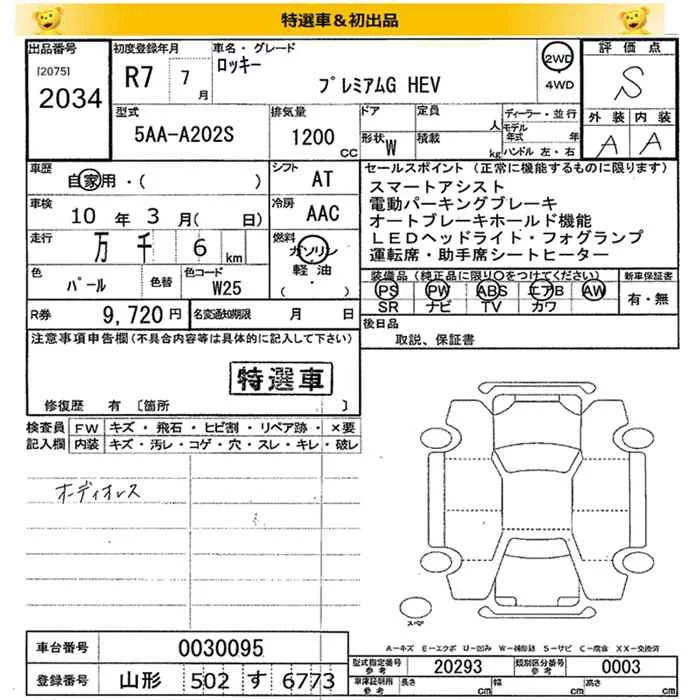 特選車＆初出品
出品番号
[2075]
2034
初度登録年月
R7 7月
車名・グレード
ロッキー
プレミアムG HEV
2WD
4WD
評価点
S
外装 内装
A A
型式
5AA-A202S
排気量
1200 CC
ドア
定員
人
形状 W
積載
kg
ディーラー・並行
モデル年式 年
ハンドル 左・右
車歴
自家用・( )
シフト
AT
車検
10年 3月(日)
冷房
AAC
走行
万 千 6 km
燃料
ガソリン
軽油
( ・ )
色
パール
色替
色コード
W25
R券 9,720円
名変通知期限 月 日
セールスポイント（正常に機能するものに限ります）
スマートアシスト
電動パーキングブレーキ
オートブレーキホールド機能
LEDヘッドライト・フォグランプ
運転席・助手席シートヒーター
装備品（純正品に限り○をつけてください）
PS PW ABS エアB AW
SR ナビ TV カワ
新車保証書
有・無
後日品
取説、保証書
注意事項申告欄(不具合内容等は具体的に記入して下さい)
特選車
修復歴 有 〔箇所 〕
検査員記入欄
FW キズ・飛石・ヒビ割・リペア跡・×要
内装 キズ・汚レ・コゲ・穴・スレ・キレ・破レ
オーディオレス
スペア
A－キズ E－エクボ U－凹み W－補修跡 S－サビ C－腐食 XX－交換済
車台番号 0030095
登録番号 山形 502 す 6773
型式指定番号 参考 20293
類別区分番号 参考 0003
車庫証明用 参考 長さ cm 幅 cm 高さ cm